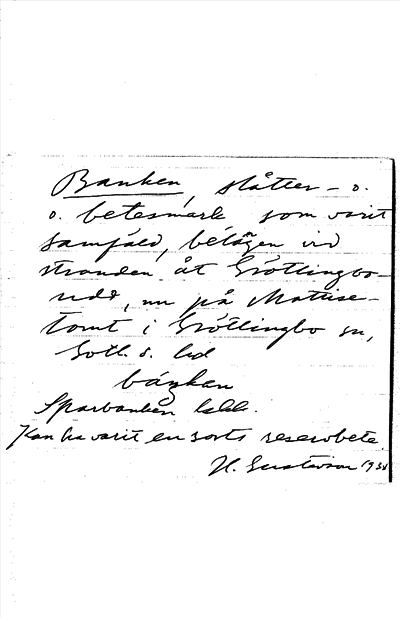 Banken, slåtter- o.
o. betesmark som varit
samfäld, belägen vid
stranden åt Gröttlingbo-
udd, nu på Mattise-
tomt i Gröttlingbo sn,
Gotl. s. hd
bánkan
Sparbanken
Kan ha varit en sorts reservbete.
H. Gustavson 19